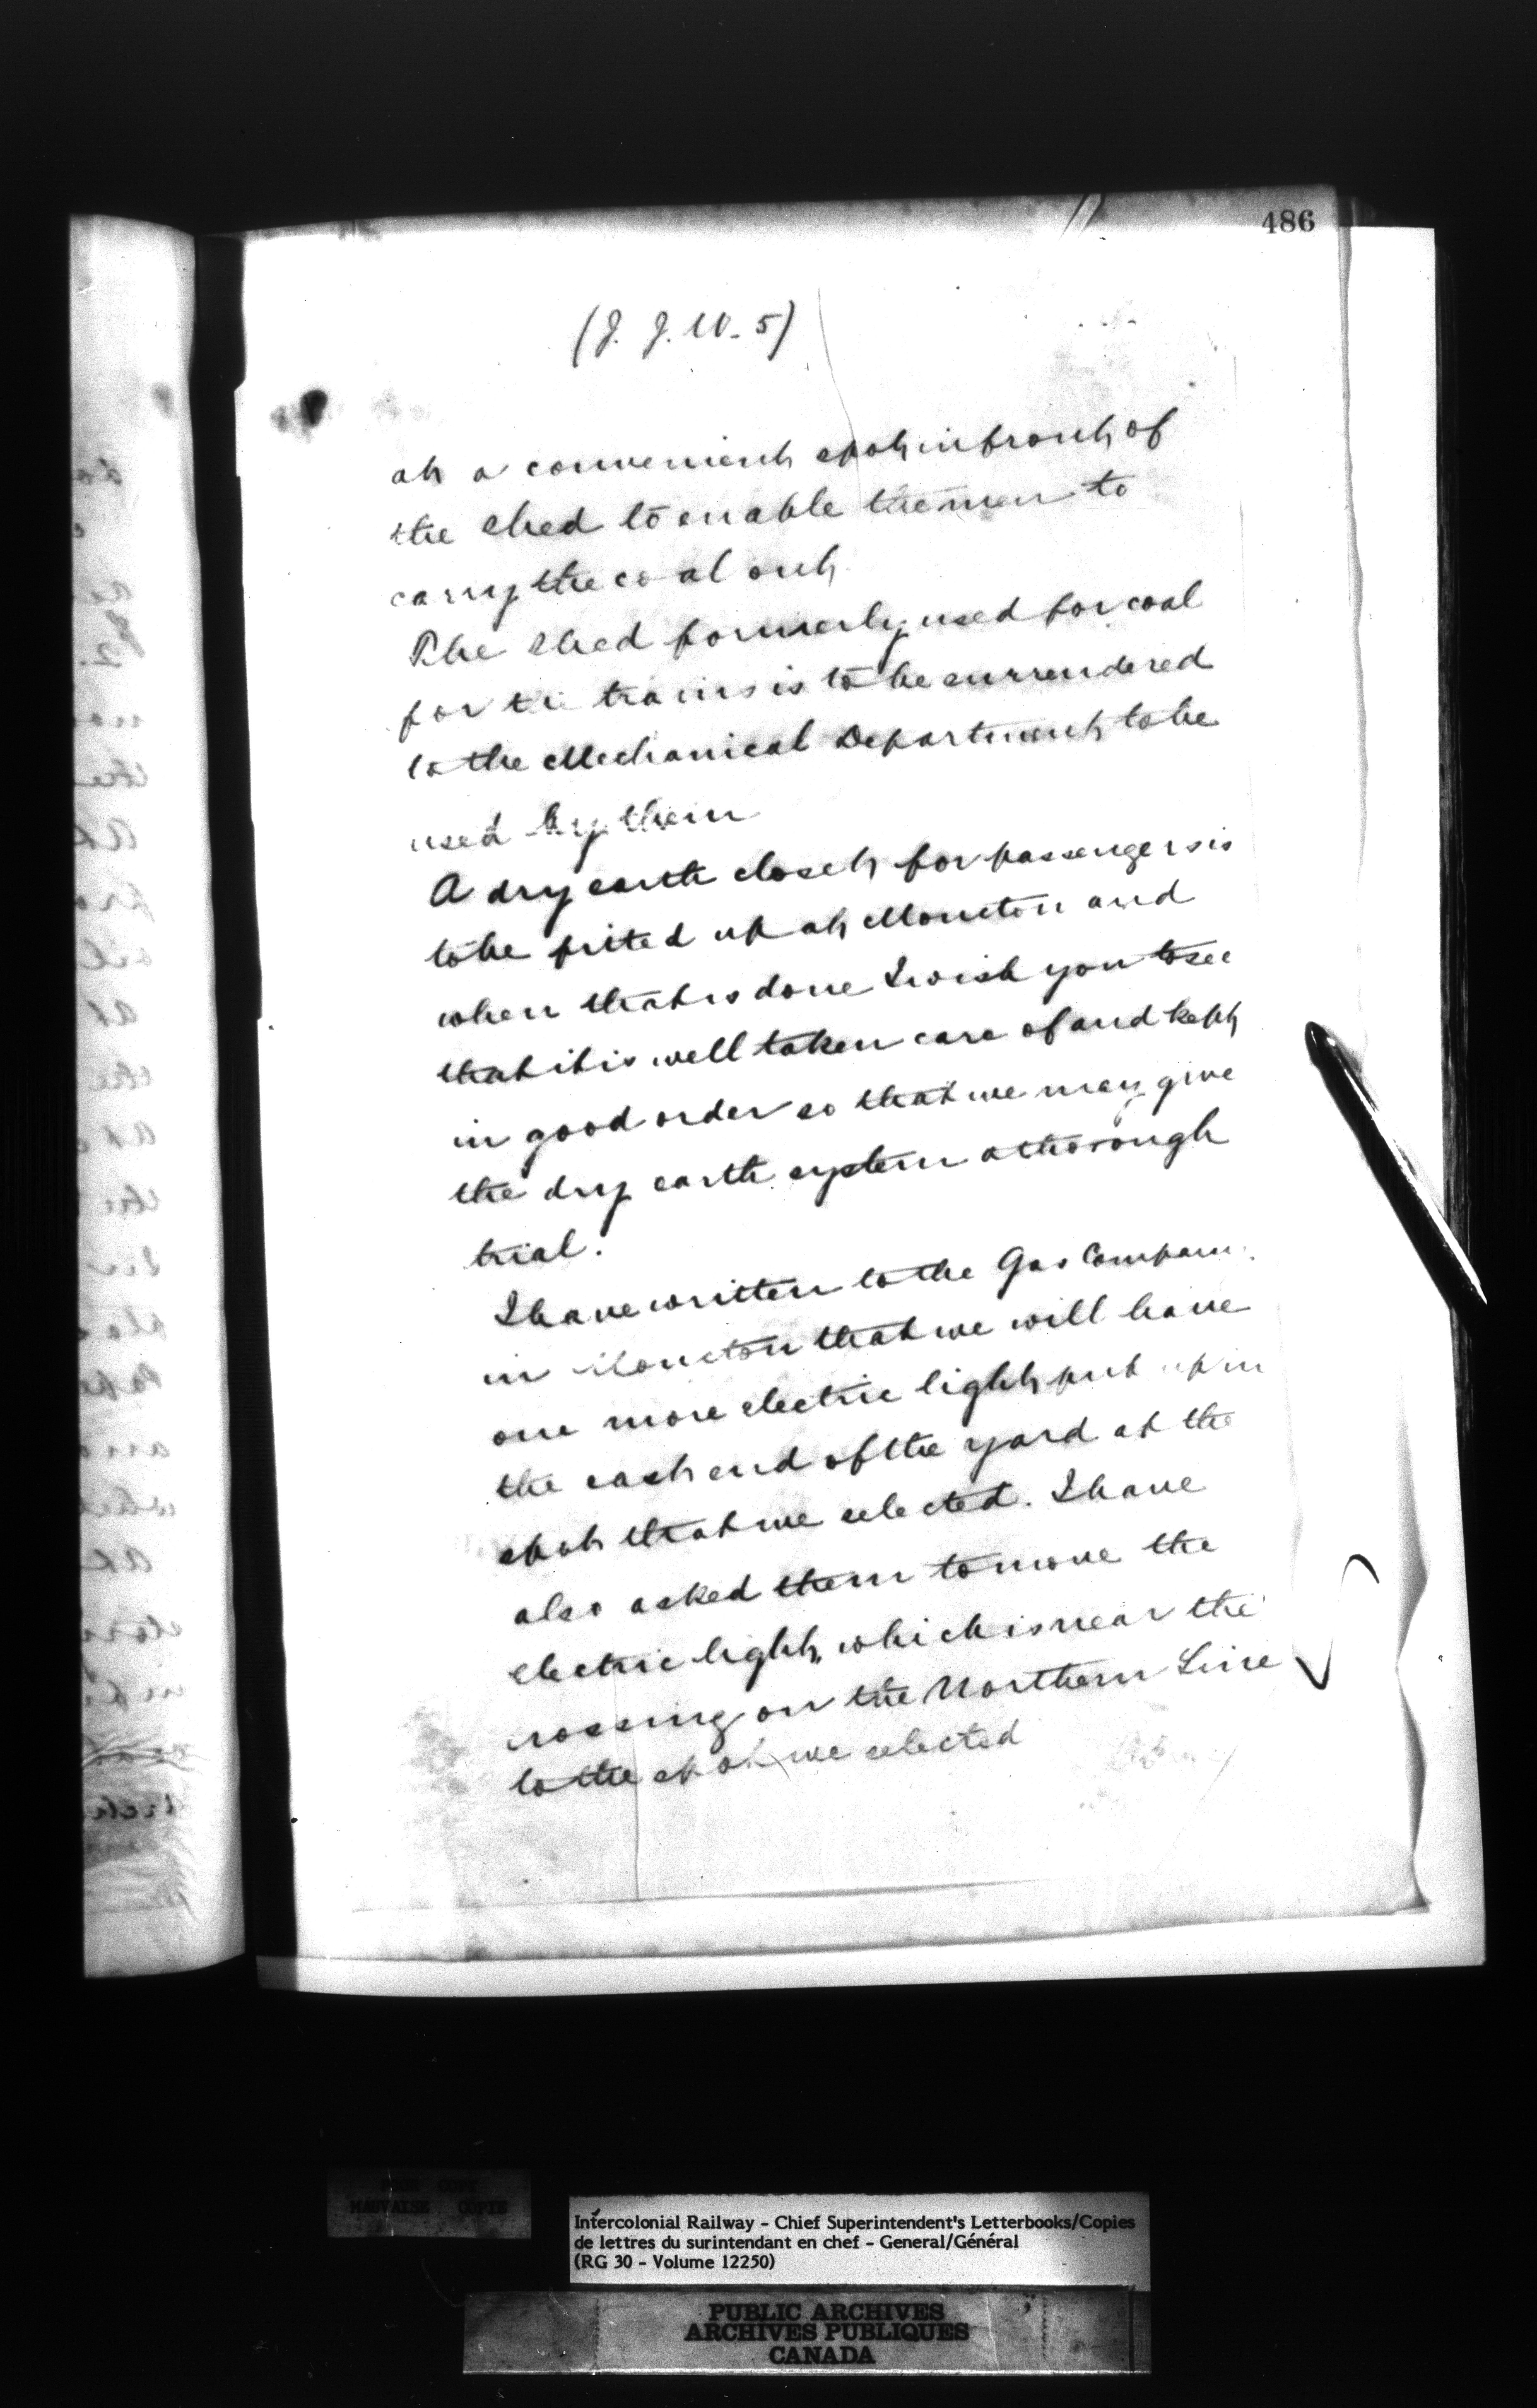 486
(J. J. W. 5)
at a convenient spot in front of
the shed to enable the men to
carry the coal out
The shed formerly used for coal
for the trains is to be surrendered
to the Mechanical Department to be
used by them
A dry earth closet for passengers is
to be fitted up at Moncton and
when that is done I wish you to see
that it is well taken care of and kept
in good order so that we may give
the dry earth system a thorough
trial.
I have written to the Gas Company
in Moncton that we will have
one more electric light put up in
the east end of the yard at the
spot that we selected. I have
also asked them to move the
electric light, which is near the
crossing on the Northern Line
to the spot we selected
POOR COPY
MAUVAISE COPIE
Intercolonial Railway - Chief Superintendent's Letterbooks/Copies
de lettres du surintendant en chef - General/Général
(RG 30 - Volume 12250)
PUBLIC ARCHIVES
ARCHIVES PUBLIQUES
CANADA